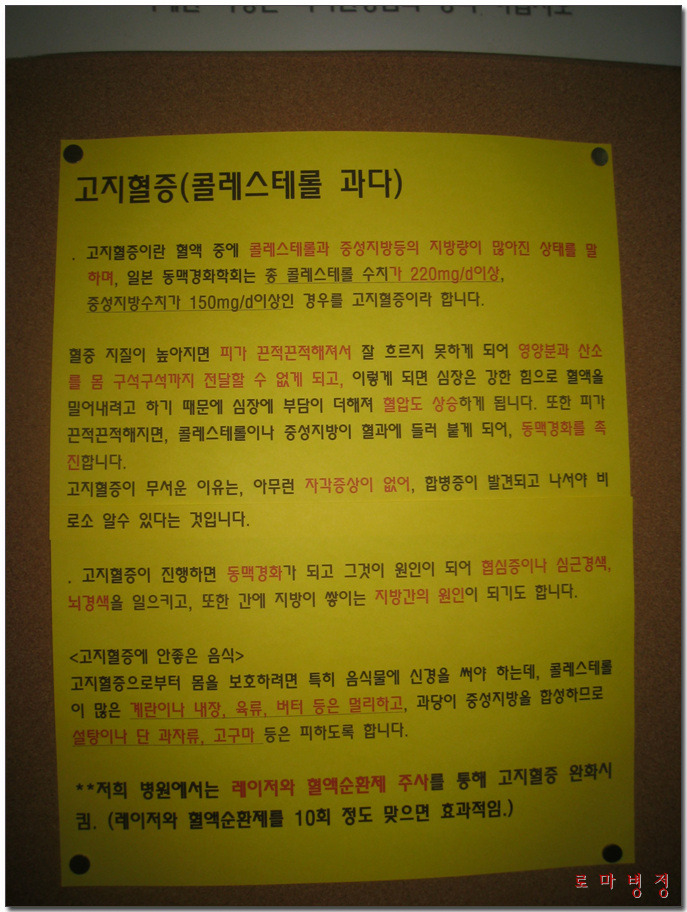 고지혈증(콜레스테롤 과다)
. 고지혈증이란 혈액 중에 콜레스테롤과 중성지방등의 지방량이 많아진 상태를 말
하며, 일본 동맥경화학회는 총 콜레스테롤 수치가 220mg/d이상,
중성지방수치가 150mg/d이상인 경우를 고지혈증이라 합니다.
혈중 지질이 높아지면 피가 끈적끈적해져서 잘 흐르지 못하게 되어 영양분과 산소
를 몸 구석구석까지 전달할 수 없게 되고, 이렇게 되면 심장은 강한 힘으로 혈액을
밀어내려고 하기 때문에 심장에 부담이 더해져 혈압도 상승하게 됩니다. 또한 피가
끈적끈적해지면, 콜레스테롤이나 중성지방이 혈과에 들러 붙게 되어, 동맥경화를 촉
진합니다.
고지혈증이 무서운 이유는, 아무런 자각증상이 없어, 합병증이 발견되고 나서야 비
로소 알수 있다는 것입니다.
. 고지혈증이 진행하면 동맥경화가 되고 그것이 원인이 되어 협심증이나 심근경색,
뇌경색을 일으키고, 또한 간에 지방이 쌓이는 지방간의 원인이 되기도 합니다.
<고지혈증에 안좋은 음식>
고지혈증으로부터 몸을 보호하려면 특히 음식물에 신경을 써야 하는데, 콜레스테롤
이 많은 계란이나 내장, 육류, 버터 등은 멀리하고, 과당이 중성지방을 합성하므로
설탕이나 단 과자류, 고구마 등은 피하도록 합니다.
**저희 병원에서는 레이저와 혈액순환제 주사를 통해 고지혈증 완화시
킴. (레이저와 혈액순환제를 10회 정도 맞으면 효과적임.)
로마병정